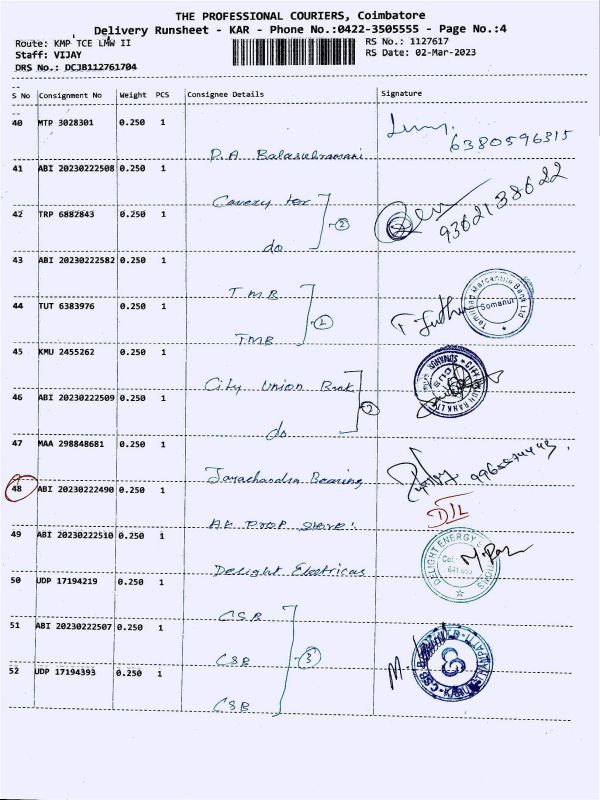 THE PROFESSIONAL COURIERS, Coimbatore
Delivery Runsheet - KAR - Phone No.:0422-3505555 - Page No.:4
Route: KMP TCE LMW II
RS No.: 1127617
Staff: VIJAY
RS Date: 02-Mar-2023
DRS No.: DCJB112761704
S No Consignment No Weight PCS Consignee Details Signature
40 MTP 3028301 0.250 1
6380596315
P.A Balasubramani
41 ABI 20230222508 0.250 1
Cauvery tex
9362138622
42 TRP 6882843 0.250 1
2
do
43 ABI 20230222582 0.250 1
TMB
Tamilnad Mercantile Bank Ltd
Somanur
44 TUT 6383976 0.250 1
2
TMB
45 KMU 2455262 0.250 1
City Union Bank
CITY UNION BANK LTD
SOMANUR
CUB
46 ABI 20230222509 0.250 1
2
do
47 MAA 298848681 0.250 1
Jayachandra Bearing
48 ABI 20230222490 0.250 1
D/L
49 ABI 20230222510 0.250 1
Delight Electricas
DELIGHT ENERGY
50 UDP 17194219 0.250 1
CSB
51 ABI 20230222507 0.250 1
CSB
3
CSB
52 UDP 17194393 0.250 1
CSB